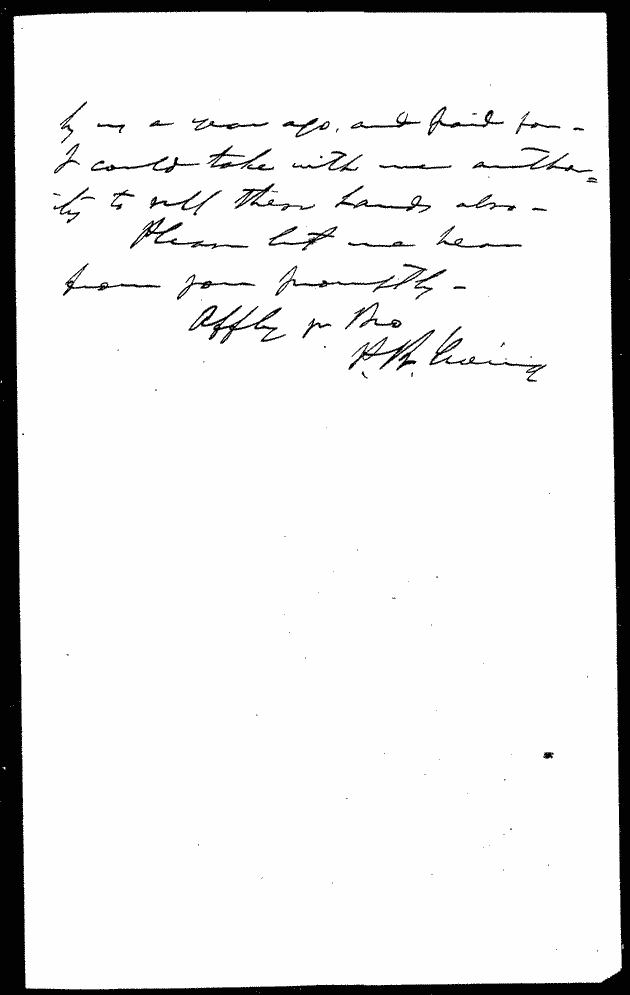 by us a year ago, and paid for -
I could take with me author=
ity to sell these lands also -
Please let me hear
from you promptly -
Affly yr Bro
H. B.